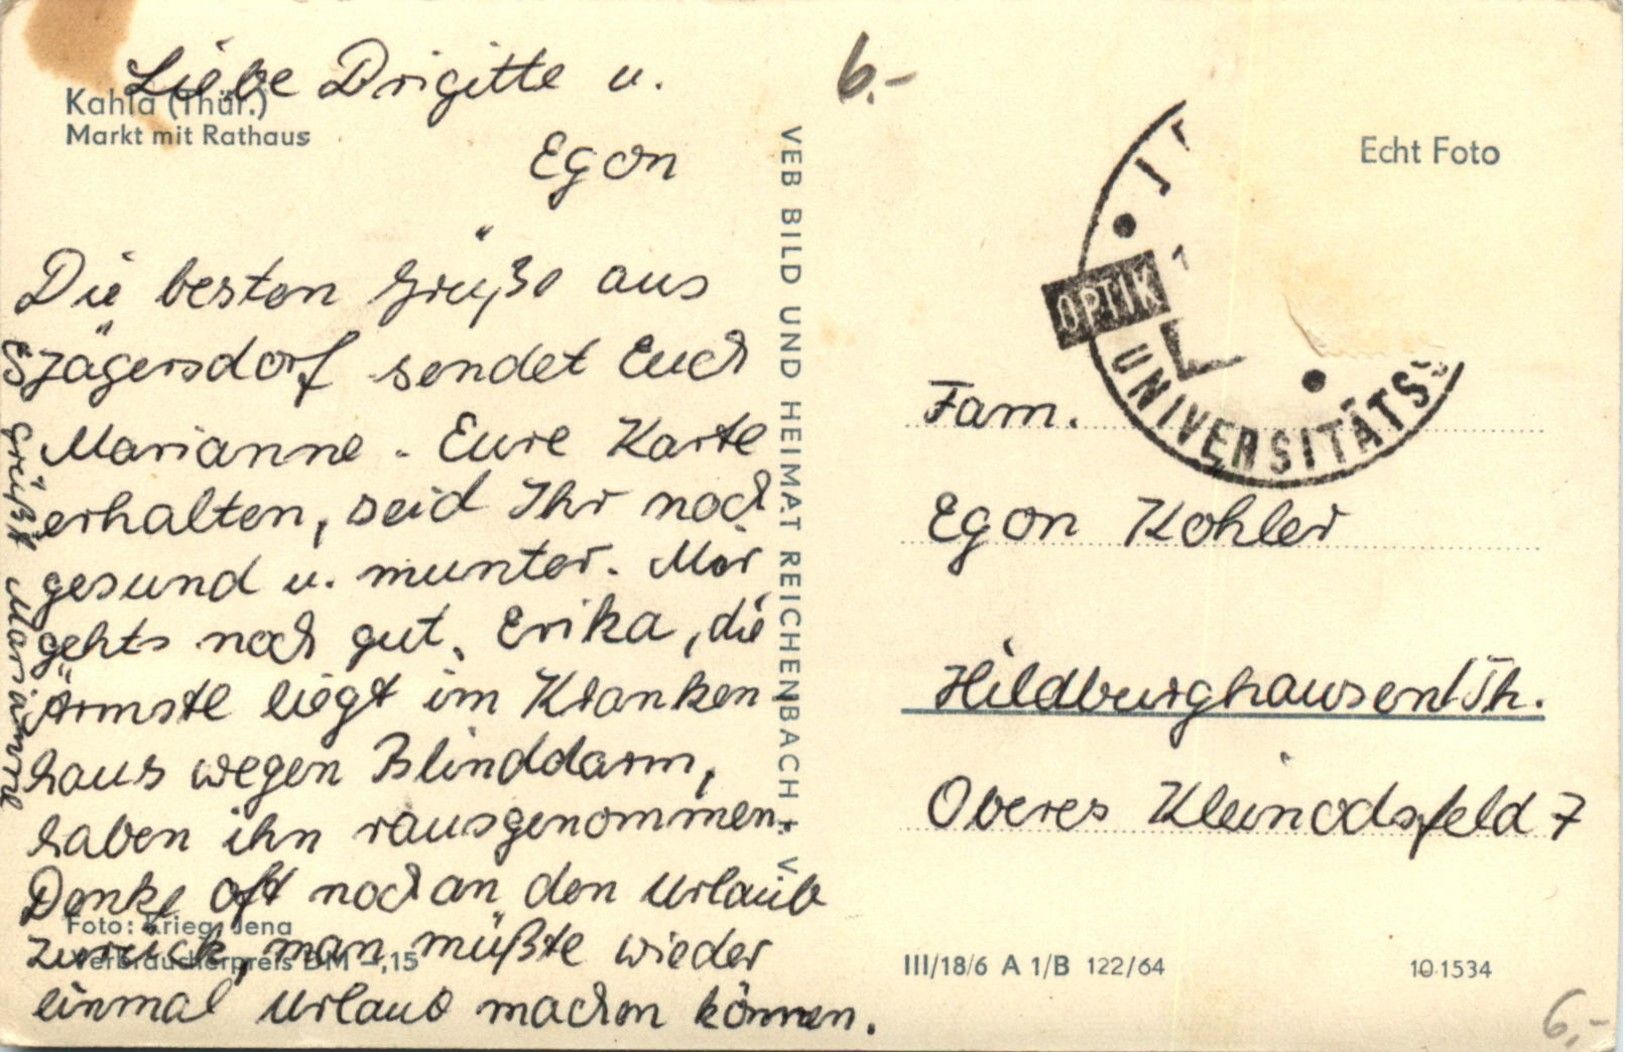 Liebe Brigitte u.
Egon
Die besten Grüße aus
Jägersdorf sendet Euch
Marianne. Eure Karte
erhalten, seid Ihr noch
gesund u. munter. Mir
gehts noch gut. Erika, die
Ärmste liegt im Kranken
haus wegen Blinddarm,
haben ihn rausgenommen.
Denke oft noch an den Urlaub
zurück, man müßte wieder
einmal Urlaub machen können.
Es grüßt Marianne
Kahla (Thür.)
Markt mit Rathaus
Foto: Krieg, Jena
Verbraucherpreis DM –,15
VEB BILD UND HEIMAT REICHENBACH i. V.
6.-
Echt Foto
OPTIK
UNIVERSITÄTSS
Fam.
Egon Kohler
Hildburghausen/Th.
Oberes Kleinodsfeld 7
III/18/6 A 1/B 122/64
10 1534
6.-